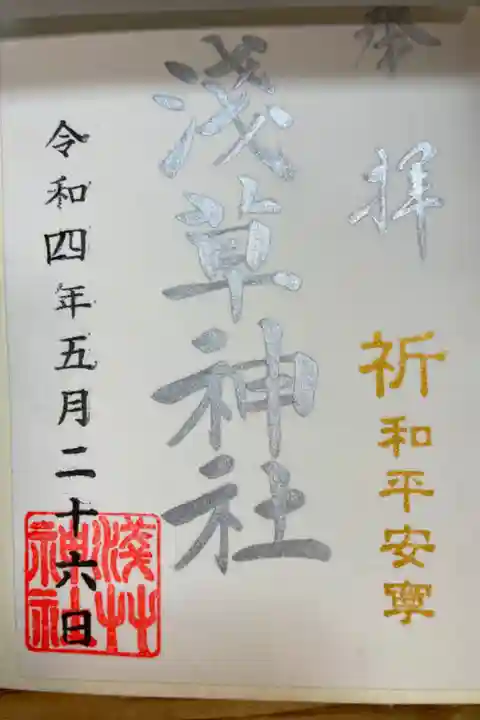 奉拝
祈和平安寧
淺草神社
令和四年五月二十六日
淺草神社